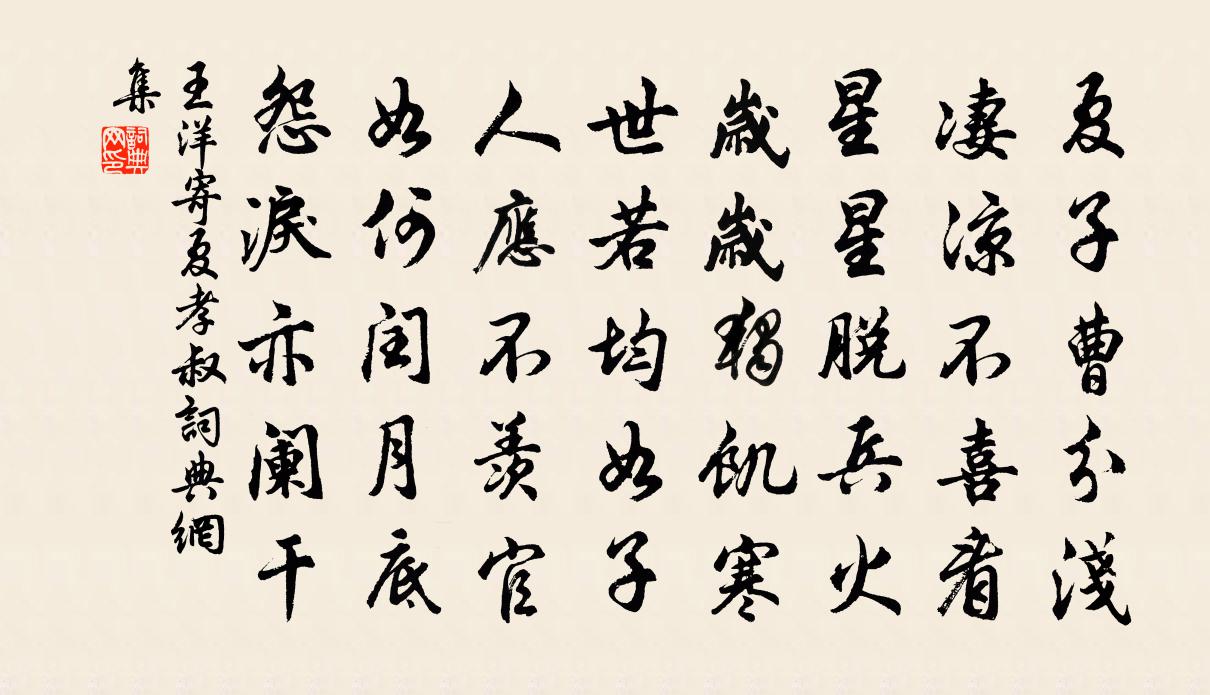 夏子曹分淺
凄涼不喜看
星星脱兵火
歲歲獨飢寒
世若均如子
人應不羨官
如何閏月底
怨淚亦闌干
王洋寄夏孝叔詞典網
集
詞典
网印